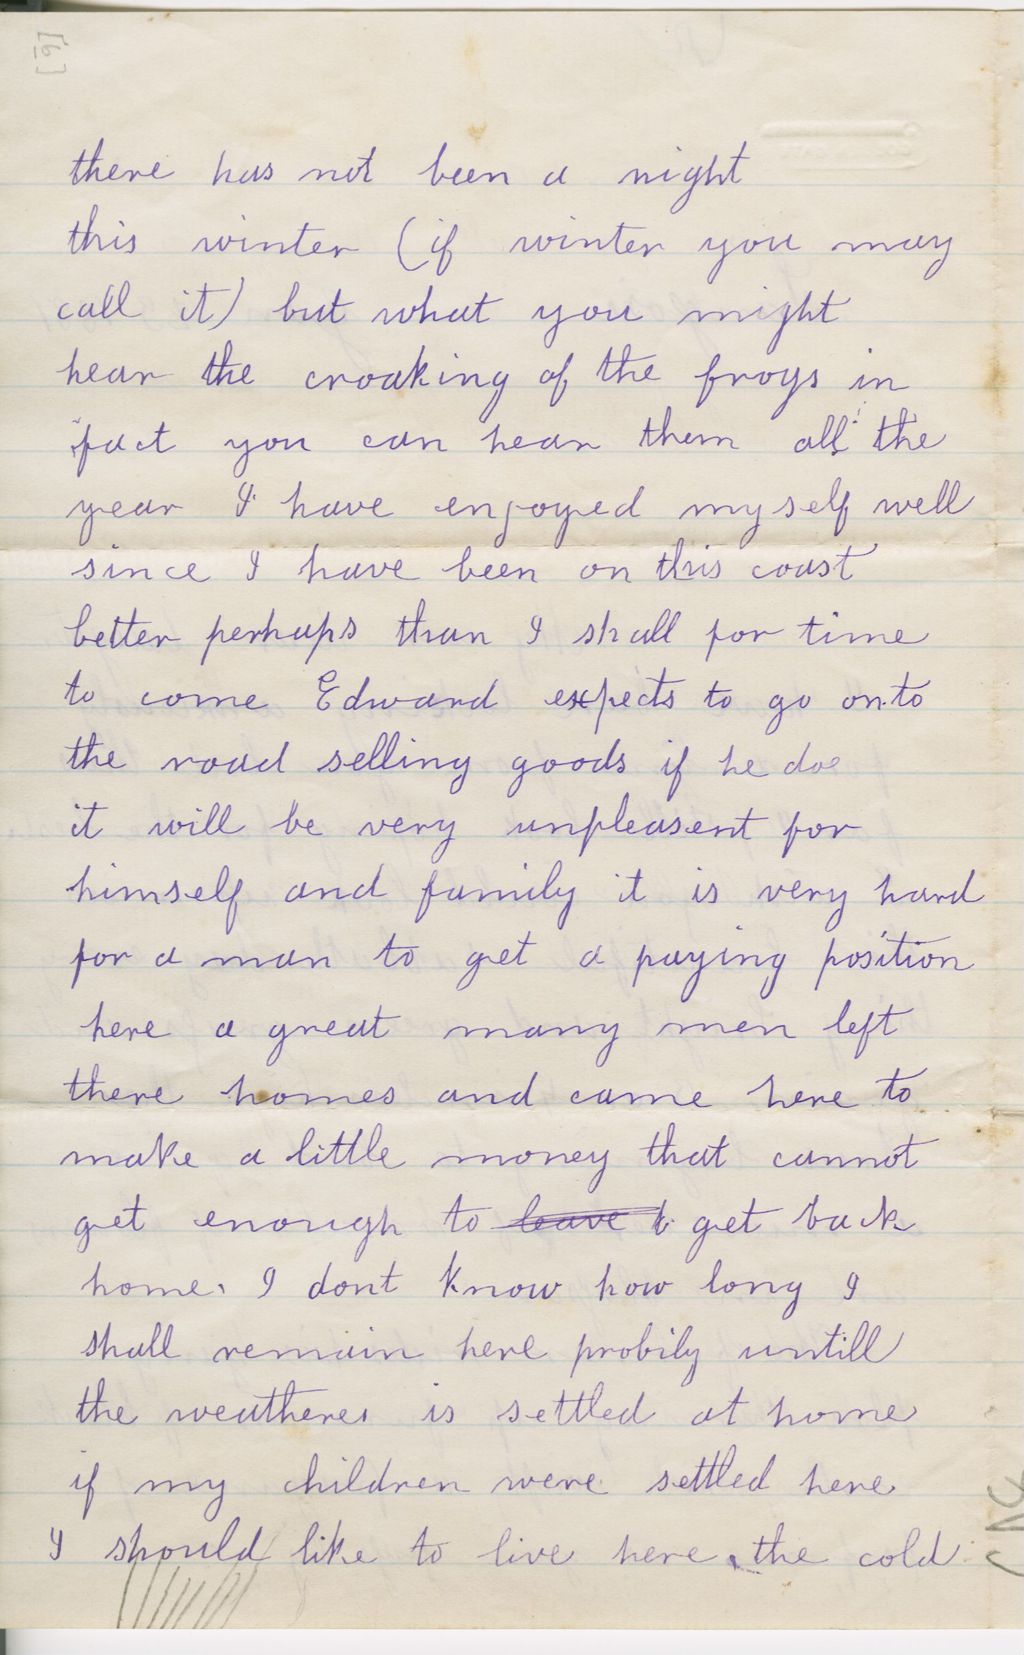 [6]
there has not been a night
this winter (if winter you may
call it) but what you might
hear the croaking of the frogs in
fact you can hear them all the
year I have enjoyed myself well
since I have been on this coast
better perhaps than I shall for time
to come Edward expects to go onto
the road selling goods if he doe
it will be very unpleasent for
himself and family it is very hard
for a man to get a paying position
here a great many men left
there homes and came here to
make a little money that cannot
get enough to leave to get back
home. I dont know how long I
shall remain here probily untill
the weatheres is settled at home
if my children were settled here
I should like to live here the cold